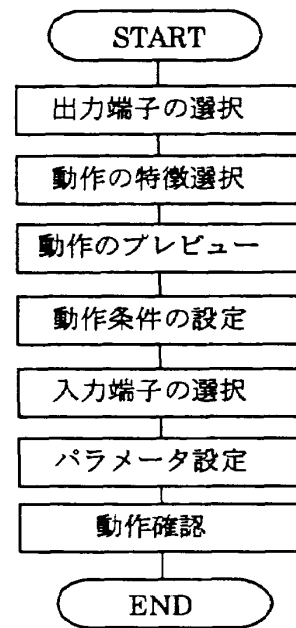 START
出力端子の選択
動作の特徴選択
動作のプレビュー
動作条件の設定
入力端子の選択
パラメータ設定
動作確認
END